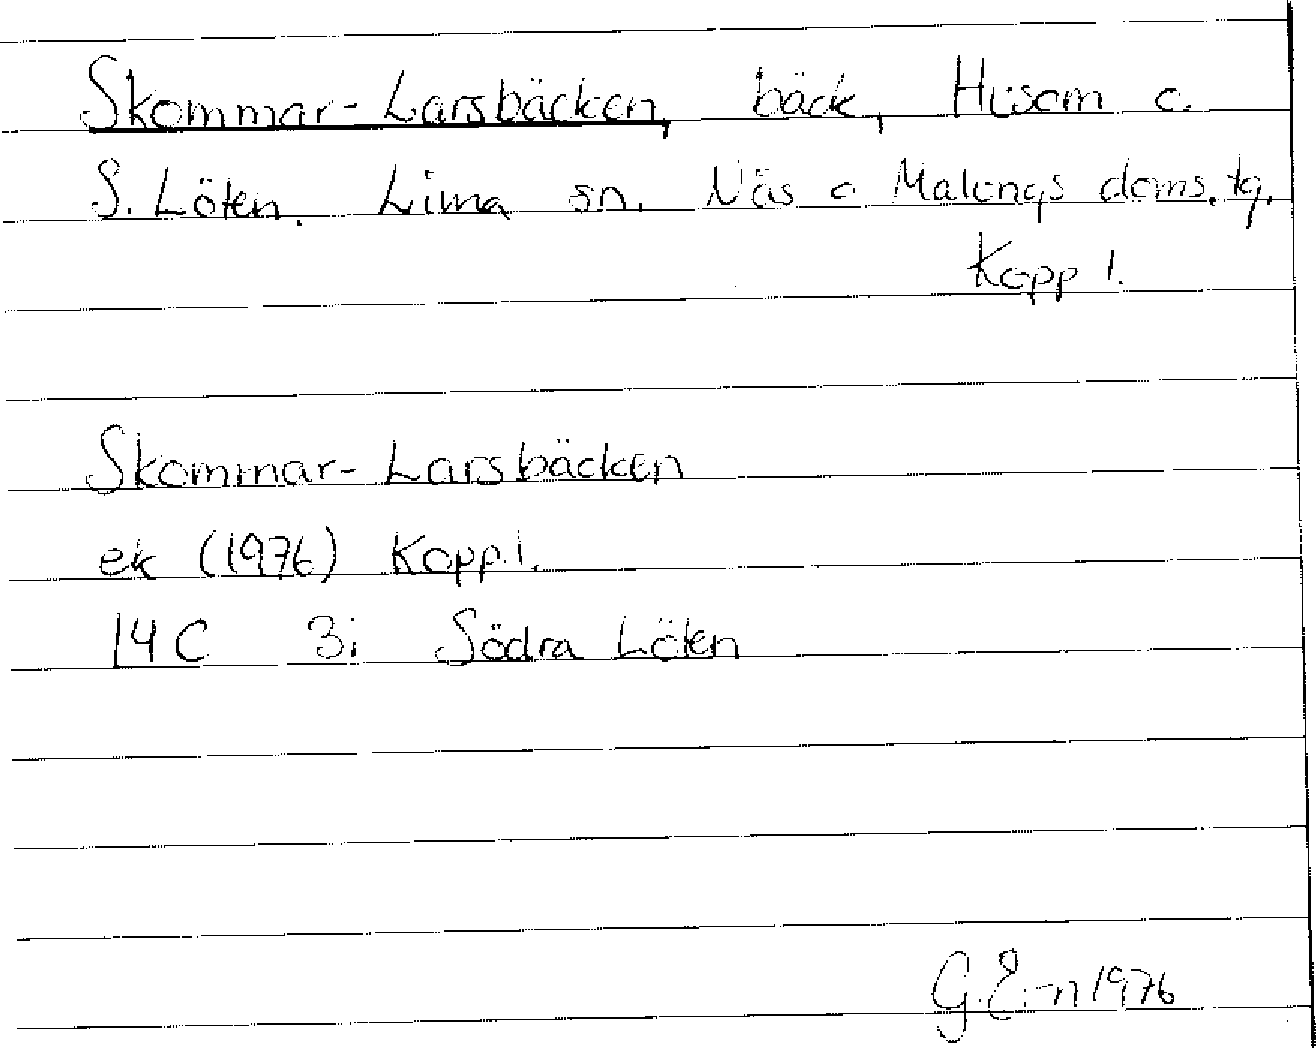 Skommar-Larsbäcken, bäck, Husom o.
S. Löten. Lima sn. Näs o Malungs doms. tg.
Kopp l.
Skommar-Larsbäcken
ek (1976) Kopp.l.
14C 3i Södra Löten
G.E.-n 1976